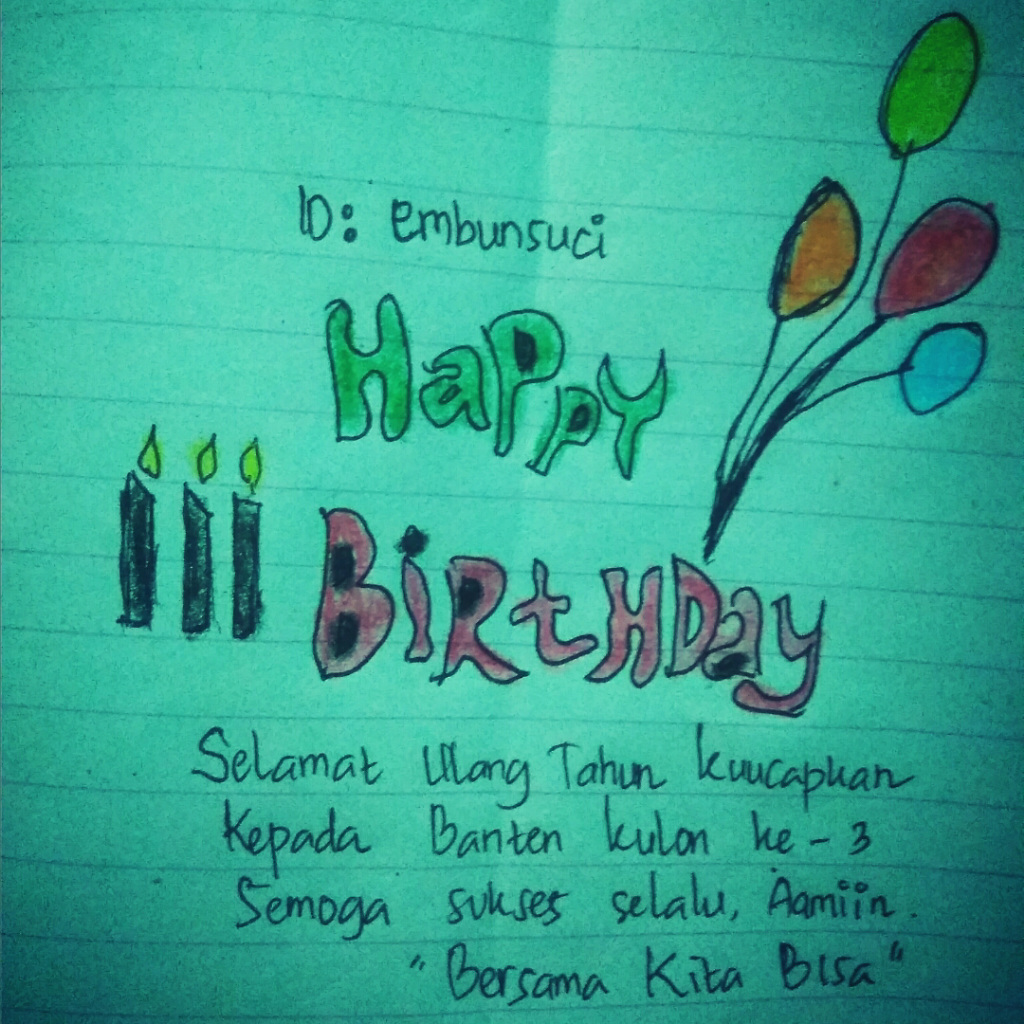 ID: embunsuci
HaPpY
BiRtHDay
Selamat Ulang Tahun kuucapkan
Kepada Banten kulon ke-3
Semoga sukses selalu, Aamiin.
"Bersama Kita BIsa"